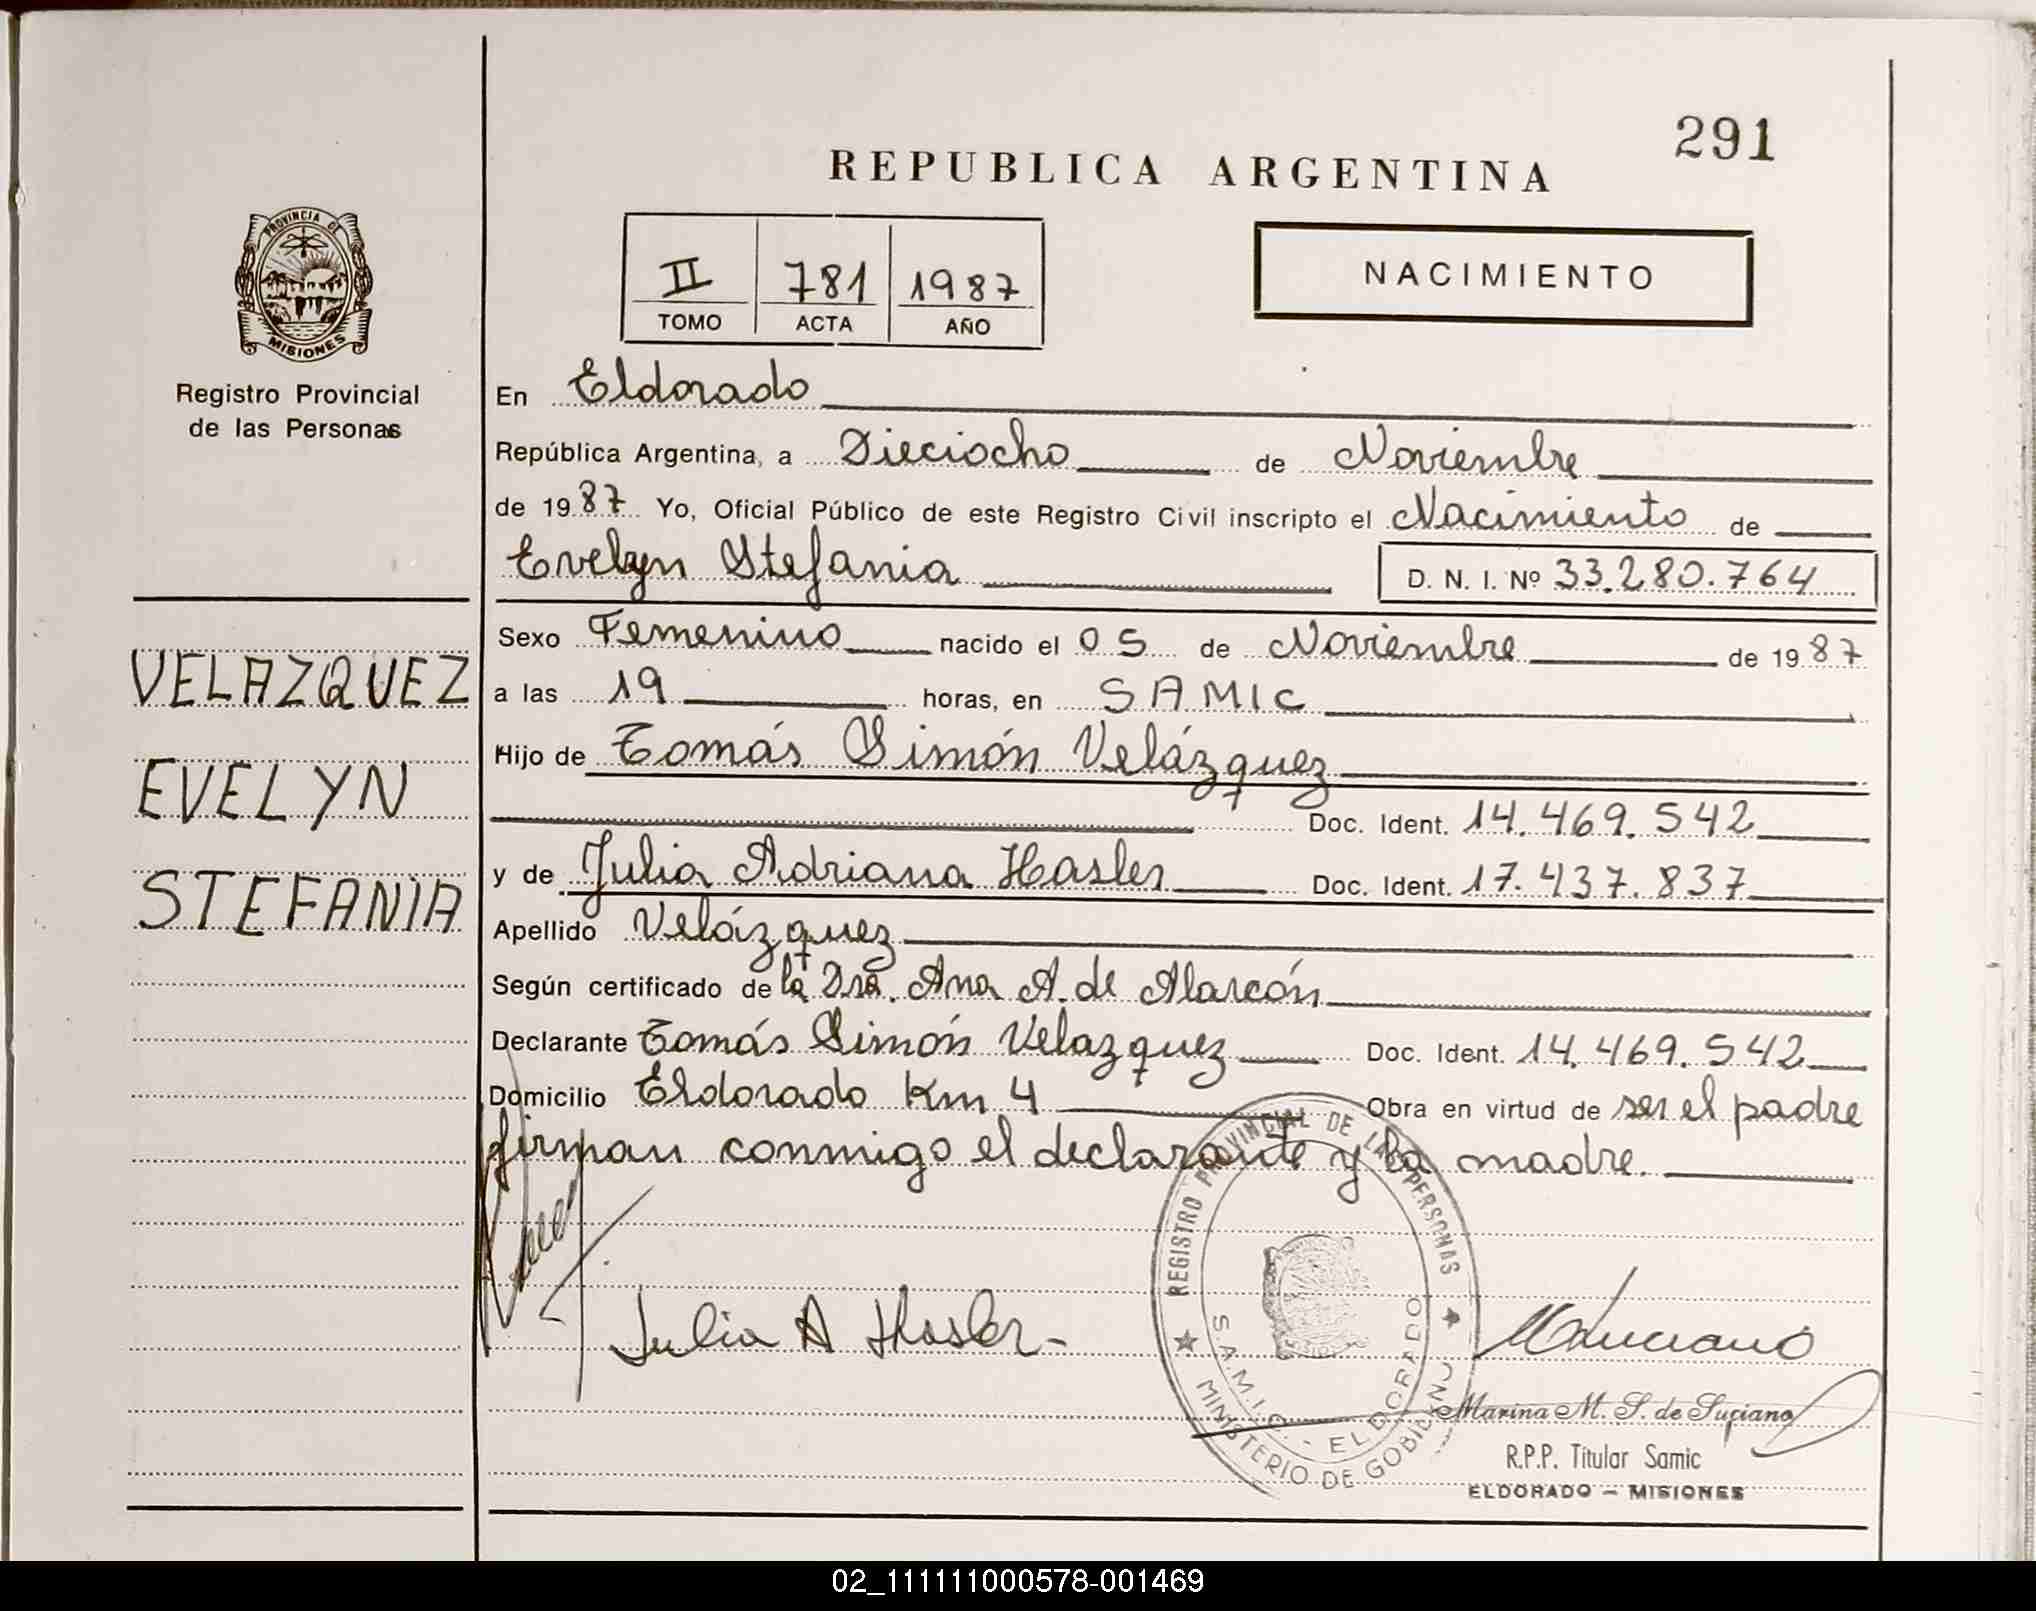 291
REPUBLICA ARGENTINA
PROVINCIA DE
MISIONES
Registro Provincial
de las Personas
II 781 1987
TOMO ACTA AÑO
NACIMIENTO
En Eldorado
República Argentina, a Dieciocho de Noviembre
de 1987 Yo, Oficial Público de este Registro Civil inscripto el Nacimiento de
Evelyn Stefania D. N. I. Nº 33.280.764
Sexo Femenino nacido el 05 de Noviembre de 1987
a las 19 horas, en SAMIC
Hijo de Tomás Simón Velázquez
Doc. Ident. 14.469.542
y de Julia Adriana Hasler Doc. Ident. 17.437.837
Apellido Velázquez
Según certificado de la Dra. Ana A. de Alarcón
Declarante Tomás Simón Velazquez Doc. Ident. 14.469.542
Domicilio Eldorado Km 4 Obra en virtud de ser el padre
firman conmigo el declarante y la madre.
VELAZQUEZ
EVELYN
STEFANIA
Julia A Hasler
REGISTRO PROVINCIAL DE LAS PERSONAS
S.A.M.I.C. - ELDORADO
MINISTERIO DE GOBIERNO
MLuciano
Marina M. S. de Luciano
R.P.P. Titular Samic
ELDORADO - MISIONES
02_111111000578-001469